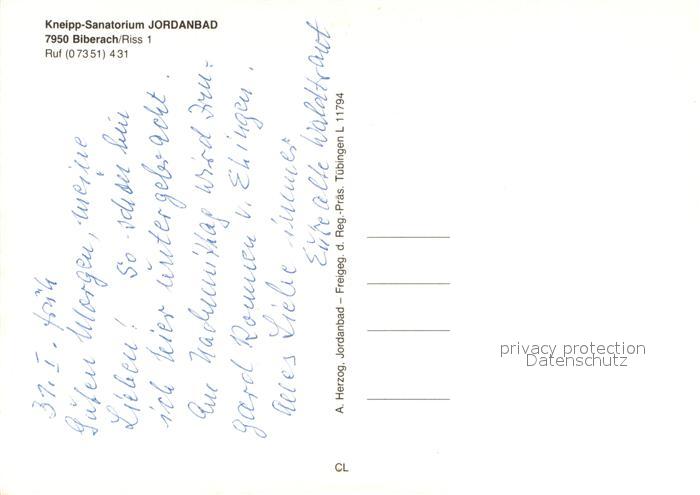 Kneipp-Sanatorium JORDANBAD
7950 Biberach/Riss 1
Ruf (07351) 431
31. I. früh
Guten Morgen, meine
Lieben! So schön bin
ich hier untergebracht.
Am Nachmittag wird Irm-
gard kommen v. Ehingen.
Alles Liebe immer
Eure alte Waldtraut
A. Herzog, Jordanbad – Freigeg. d. Reg.-Präs. Tübingen L 11794
privacy protection
Datenschutz
CL